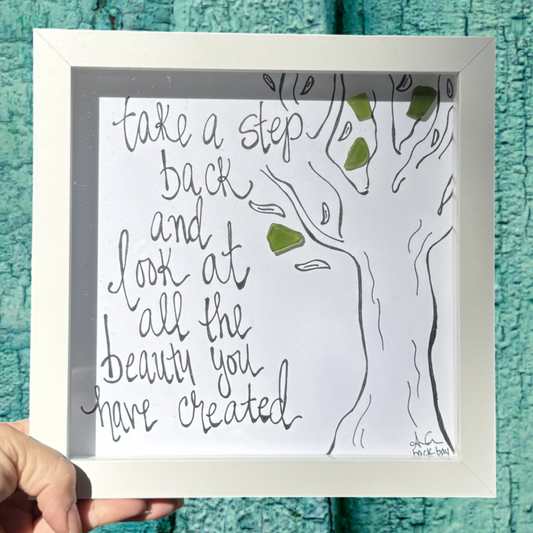 take a step
back
and
look at
all the
beauty you
have created